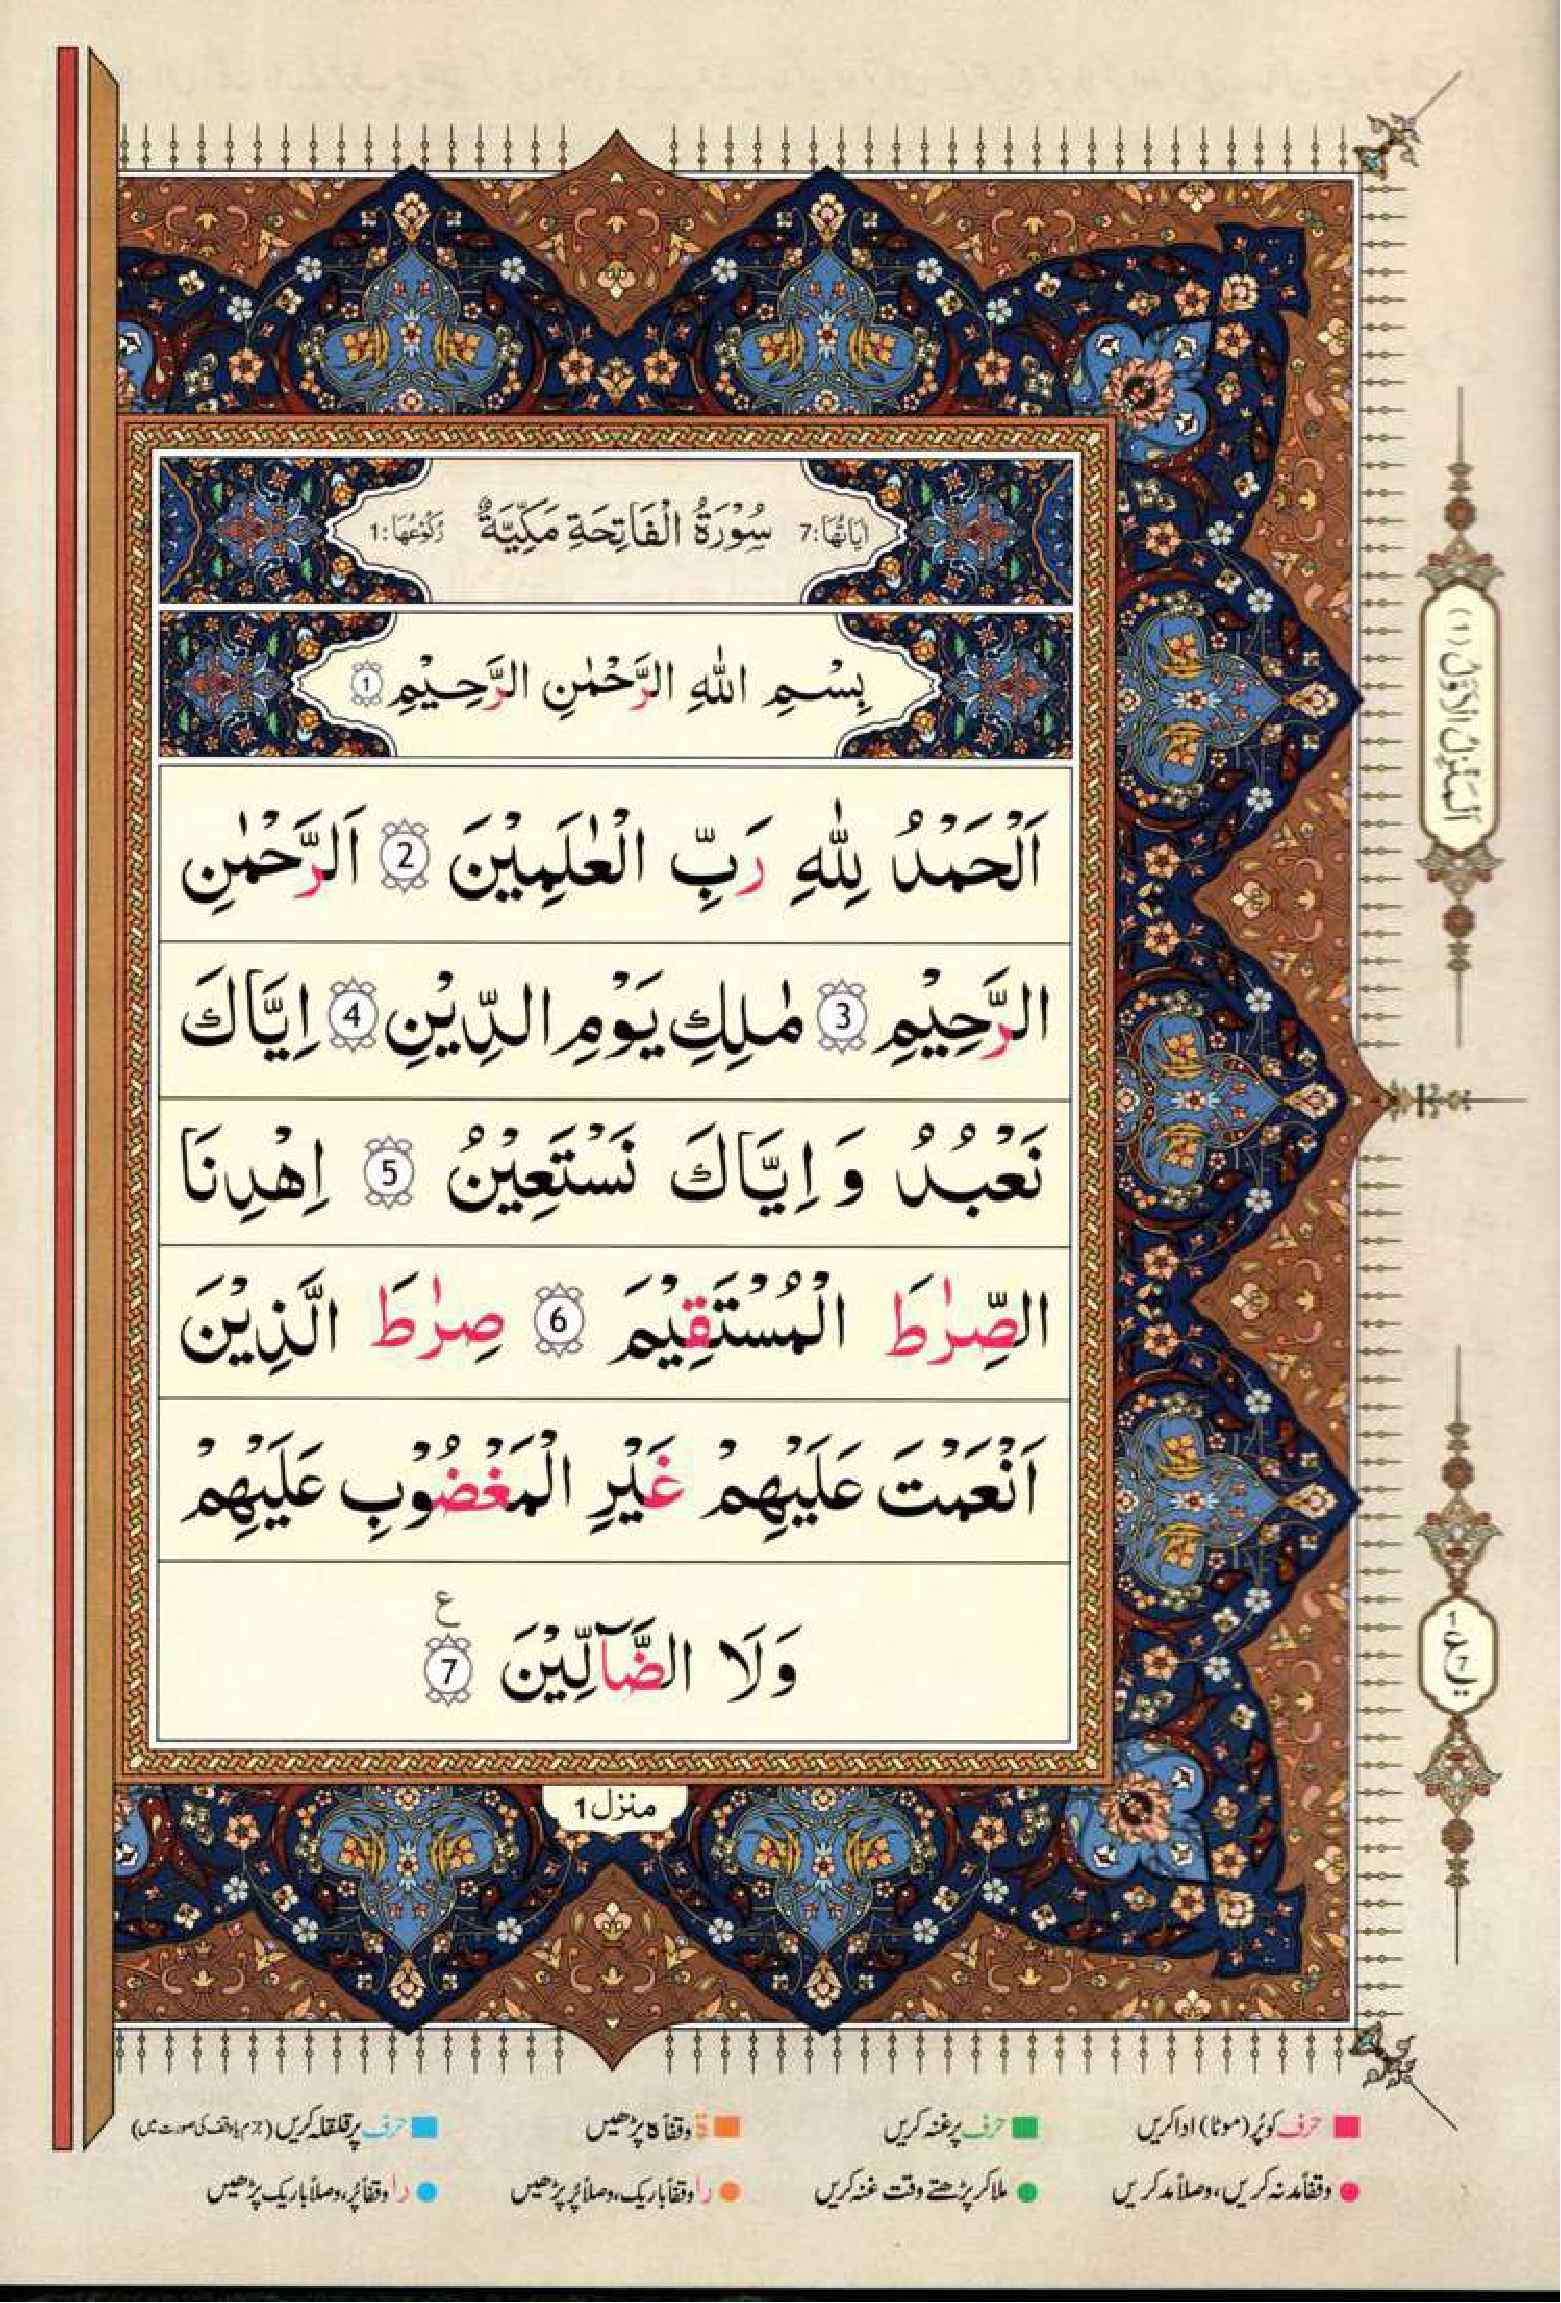 اٰيَاتُهَا:7 سُوْرَةُ الْفَاتِحَةِ مَكِّيَّةٌ رُكُوْعُهَا:1
بِسْمِ اللهِ الرَّحْمٰنِ الرَّحِيْمِ 1
اَلْحَمْدُ لِلّٰهِ رَبِّ الْعٰلَمِيْنَ 2 اَلرَّحْمٰنِ
الرَّحِيْمِ 3 مٰلِكِ يَوْمِ الدِّيْنِ 4 اِيَّاكَ
نَعْبُدُ وَ اِيَّاكَ نَسْتَعِيْنُ 5 اِهْدِنَا
الصِّرٰطَ الْمُسْتَقِيْمَ 6 صِرٰطَ الَّذِيْنَ
اَنْعَمْتَ عَلَيْهِمْ غَيْرِ الْمَغْضُوْبِ عَلَيْهِمْ
ع
وَلَا الضَّآلِّيْنَ 7
منزل 1
اَلْمَنْزِلُ الْاَوَّلُ (1)
1
ع 7
حرف کو پُر (موٹا) ادا کریں
حرف پر غنہ کریں
ۃ وقفاً ہ پڑھیں
حرف پر قلقلہ کریں (جزم یا وقف کی صورت میں)
وقفاً مد نہ کریں، وصلاً مد کریں
ملا کر پڑھتے وقت غنہ کریں
را وقفاً باریک، وصلاً پُر پڑھیں
را وقفاً پُر، وصلاً باریک پڑھیں